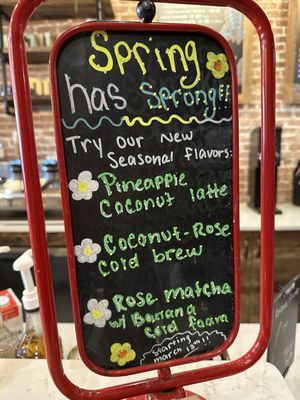 Spring
has Sprong!!
Try our New
Seasonal flavors:
Pineapple
Coconut latte
Coconut-Rose
cold brew
Rose matcha
w/ Banana
cold foam
Starting
march 13th!!